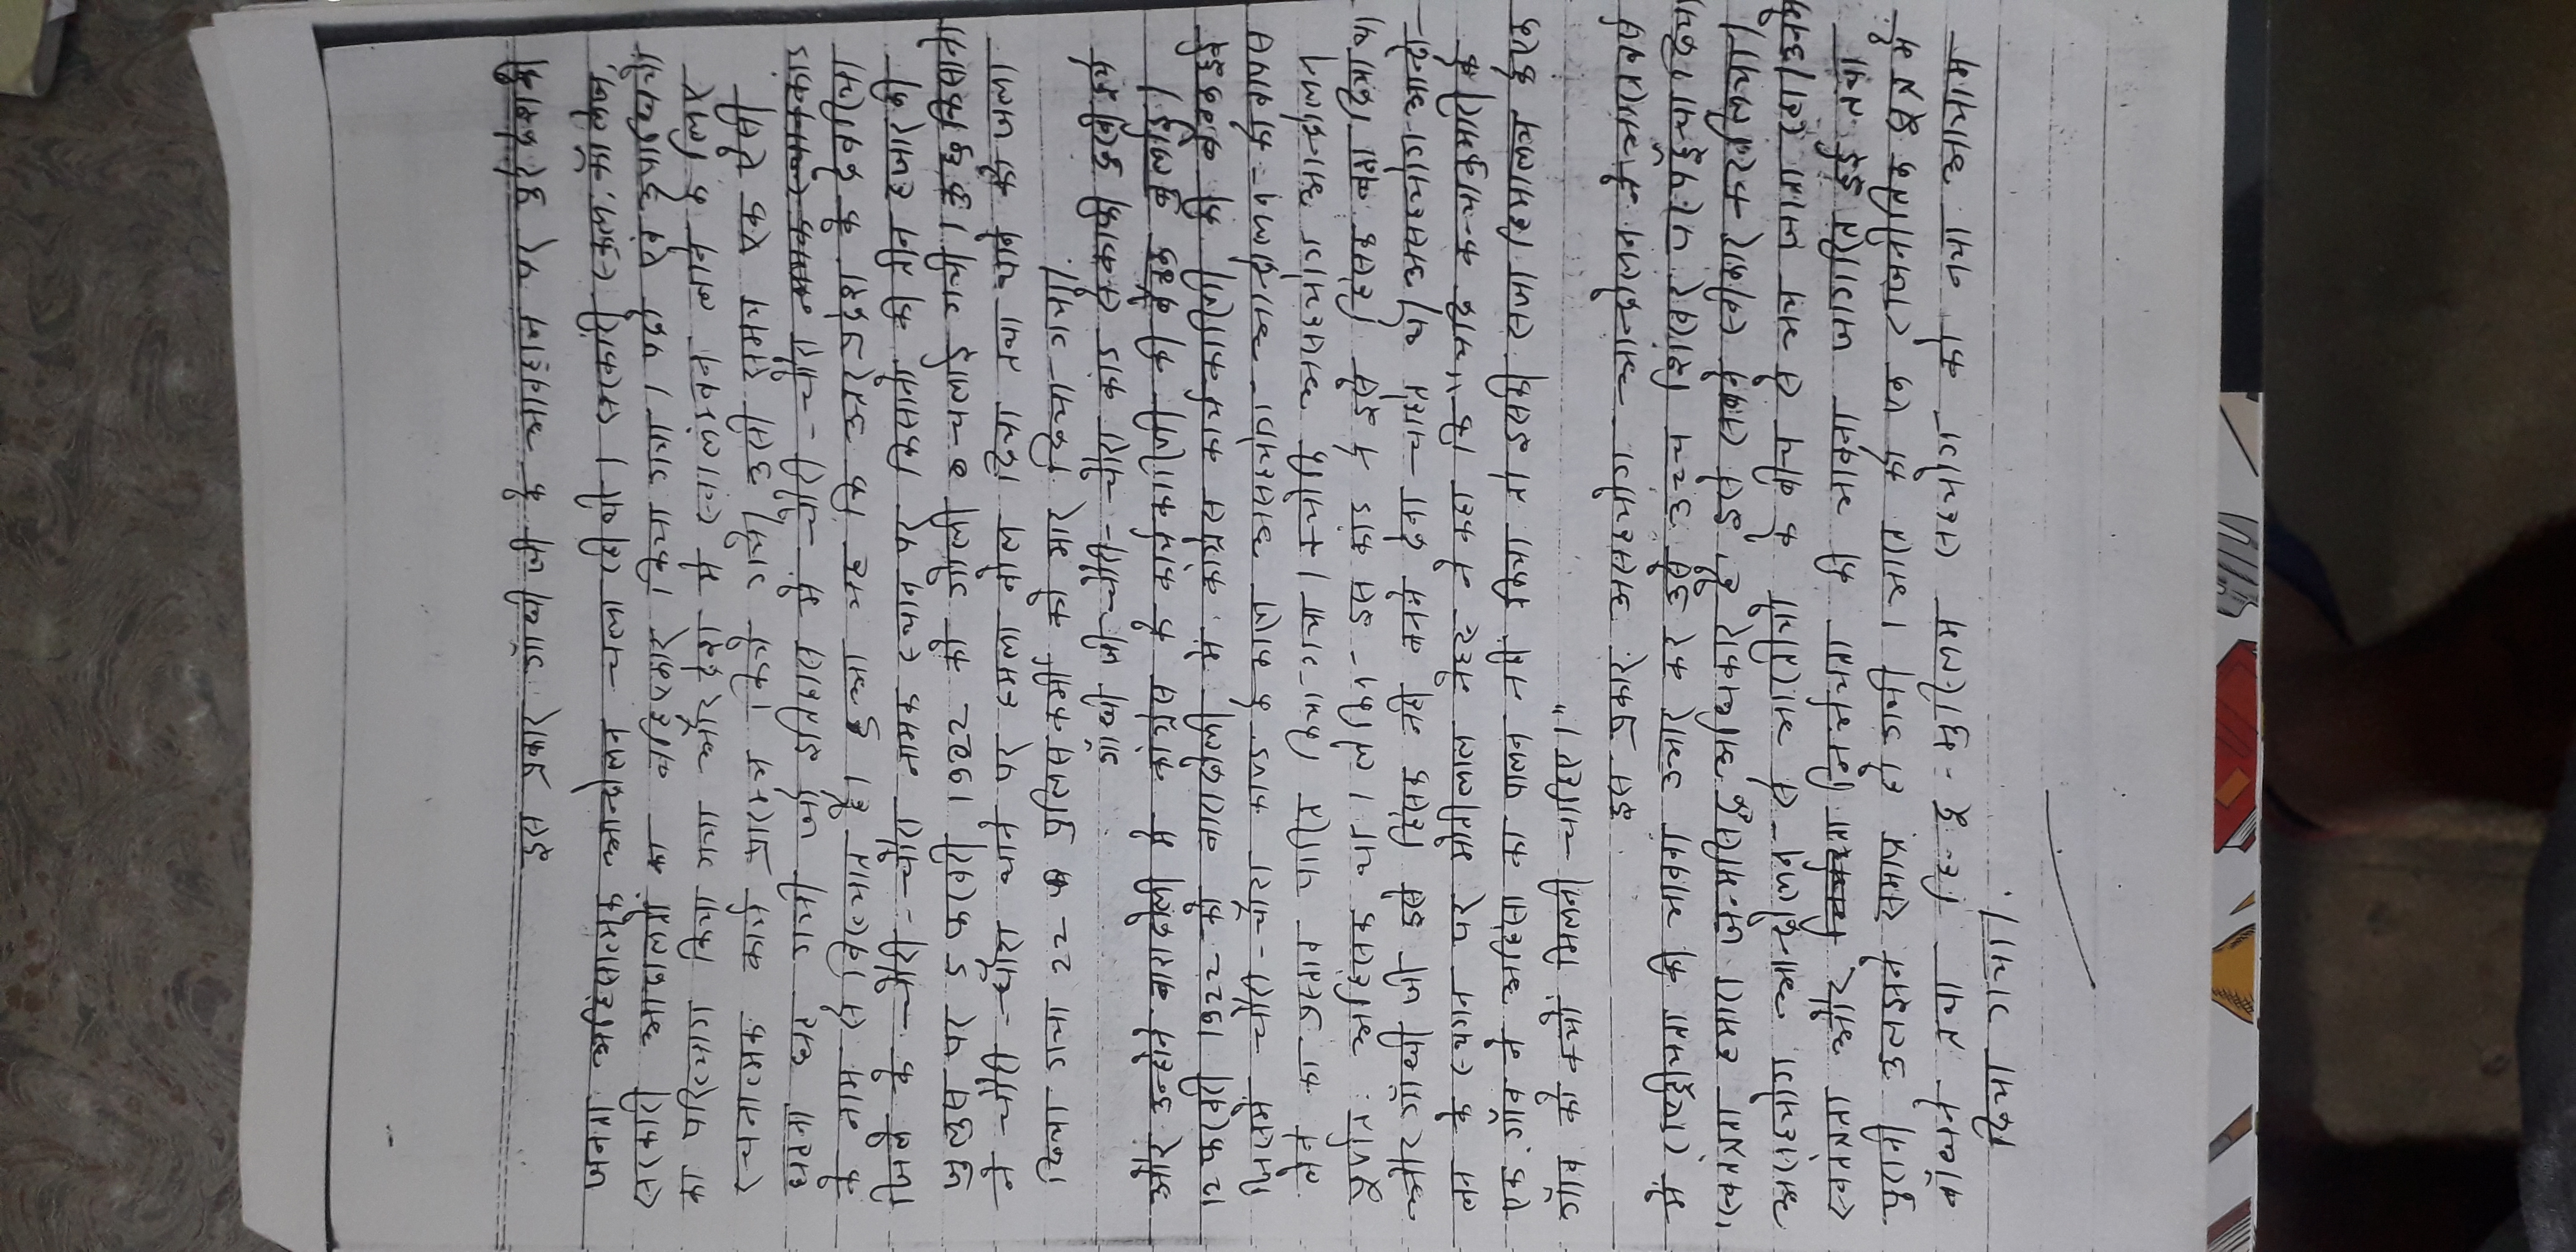 इस प्रकार गाँधी जी के आवाहन पर पूरे देश की
जनता अहिंसात्मक आन्दोलन चला रही थी। सरकारी स्कूल, कॉलेज,
सरकारी अदालतों का बहिष्कार किया गया। पदों एवं उपाधियों
का परित्याग किया गया और देश में स्वावलंबन लाने के लिए
रचनात्मक कार्य प्रारम्भ किये गये। उसी समय एक ऐसी
घटना घट गयी जो इतिहास में चौरी - चौरा कांड
के नाम से विख्यात है। हुआ यह कि उत्तर प्रदेश के देवरिया
जिले के चौरी - चौरा नामक स्थान पर किसानों की तीन हजार की
जुलूस पर 5 फरवरी 1922 को गोली चलाई गयी। क्रुद्ध किसानों
ने चौरी - चौरा थाने पर हमला बोल दिया तथा थाने को जला
दिया गया 22 पुलिसकर्मी को मार दिया गया।
गाँधी जी चौरी - चौरा कांड से काफी दुखी हुये
और उन्होंने बारादोली में कांग्रेस के कार्यकारिणी की बैठक बुलाई।
12 फरवरी 1922 को बारादोली में कांग्रेस कार्यकारिणी की बैठक हुई
जिसमें चौरी - चौरा काण्ड के कारण असहयोग आन्दोलन को वापस
लेने का प्रस्ताव पारित किया गया। क्योंकि असहयोग आन्दोलन
पूर्णतः अहिंसक था। लेकिन इस कांड ने इसे हिंसक बना दिया था
और गाँधी जी इसे हिंसक नहीं बनने देना चाहते थे। असहयोग आन्दो-
लन के स्थगन पर मोतीलाल नेहरू ने कहा कि "यदि कन्याकुमारी के
एक गाँव ने अहिंसा का पालन नहीं किया तो इसकी सजा हिमालय के एक
गाँव को क्यों मिलनी चाहिए।"
इस प्रकार असहयोग आन्दोलन ने भारतीयों
में राष्ट्रीयता की भावना उभार कर उसे उच्च शिखर पर पहुँचा दिया।
स्वतंत्रता हमारा जन्मसिद्ध अधिकार है, इसे सबने स्वीकार कर लिया था।
असहयोग आन्दोलन से भारतीयों के बीच से भय जाता रहा। उनमें
स्वतंत्रता और निर्भयता की भावना जागरित हुई तथा
पुरानी उलझनें समाप्त हो गयी। भारत को एक राजनीतिक सूत्र में
बाँधने तथा हिन्दू - मुस्लिम सहयोग को नया आयाम
दिया गया।